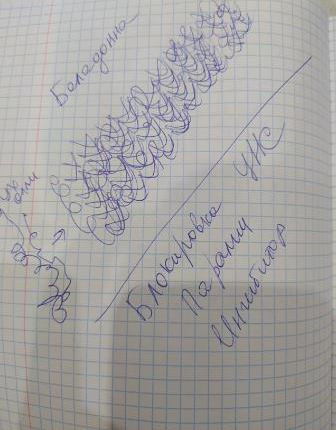 Баладонна
УЖС
Блокировка
Парали
Ингибитор